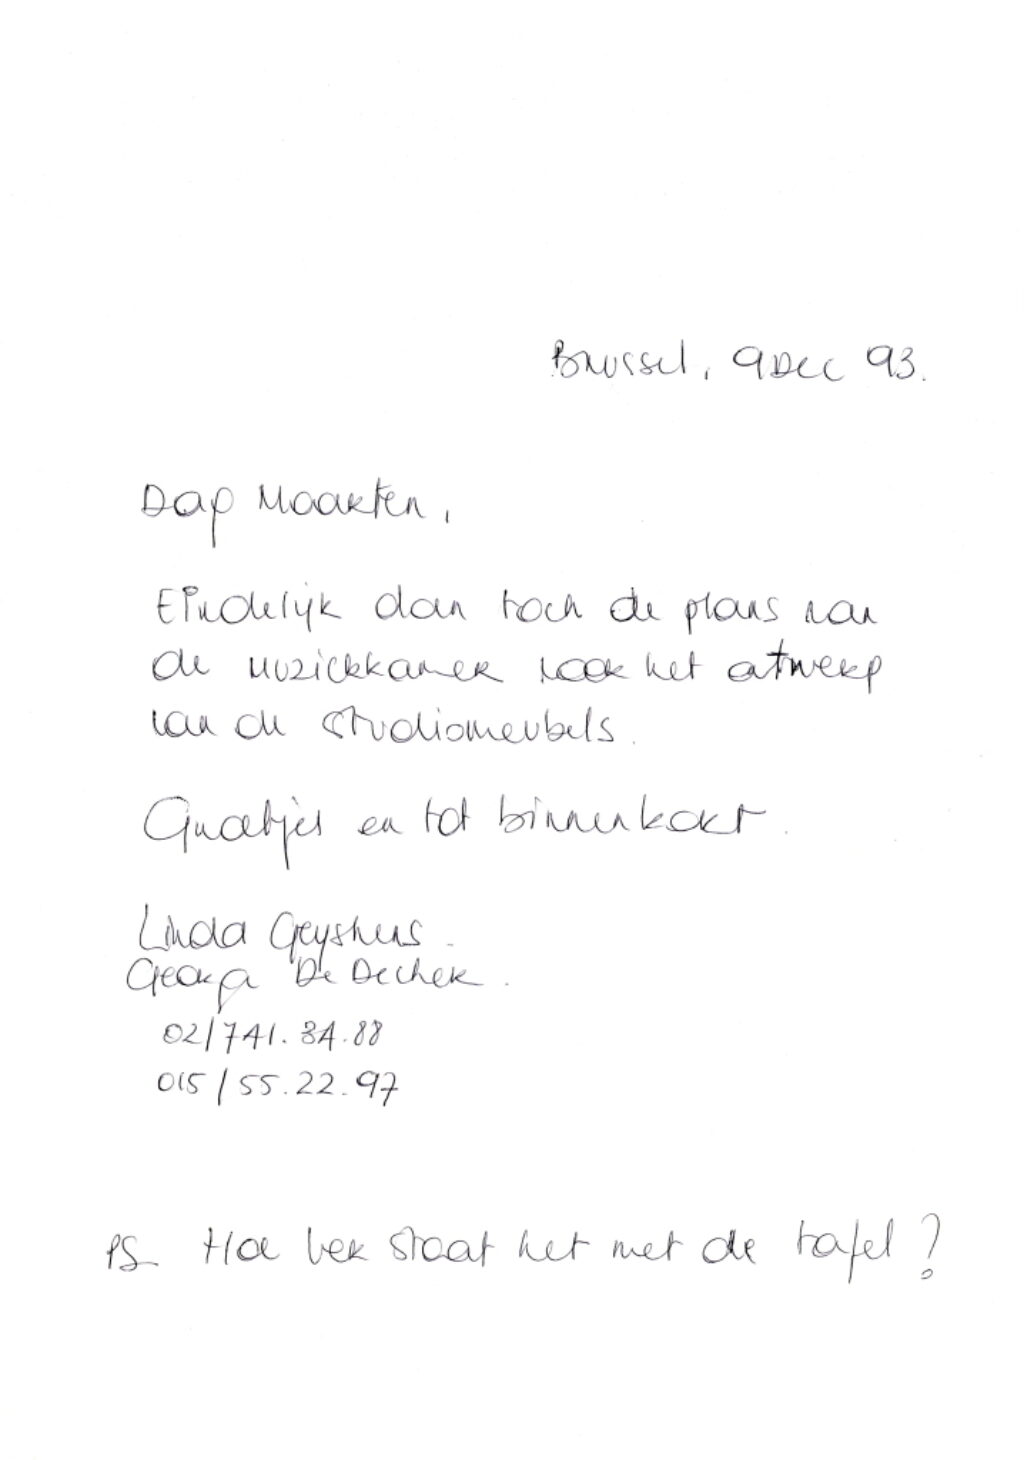 Brussel, 9 Dec 93.
Dag Maarten,
Eindelijk dan toch de plans van
de muziekkamer voor het ontwerp
van de studiomeubels.
Groetjes en tot binnenkort.
Linda
De Decker.
02/741.34.88
015/55.22.97
PS Hoe ver staat het met de tafel?